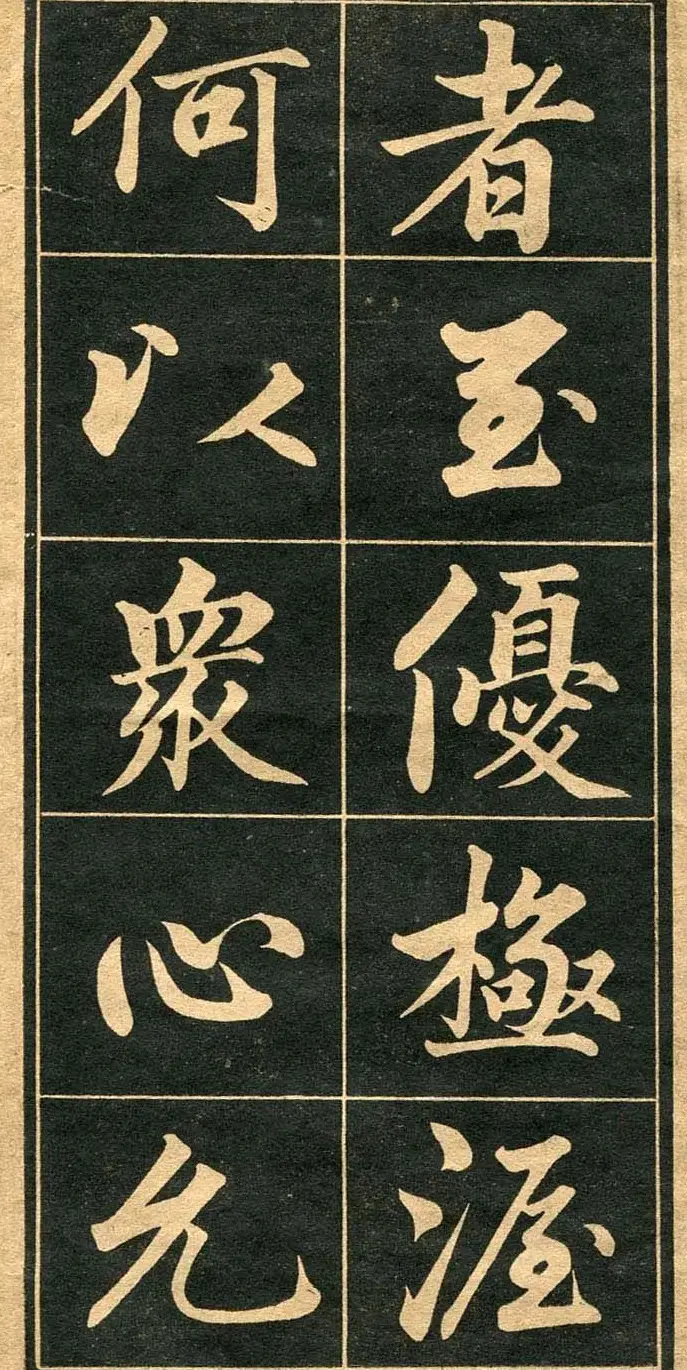 者至優極渥
何以眾心允